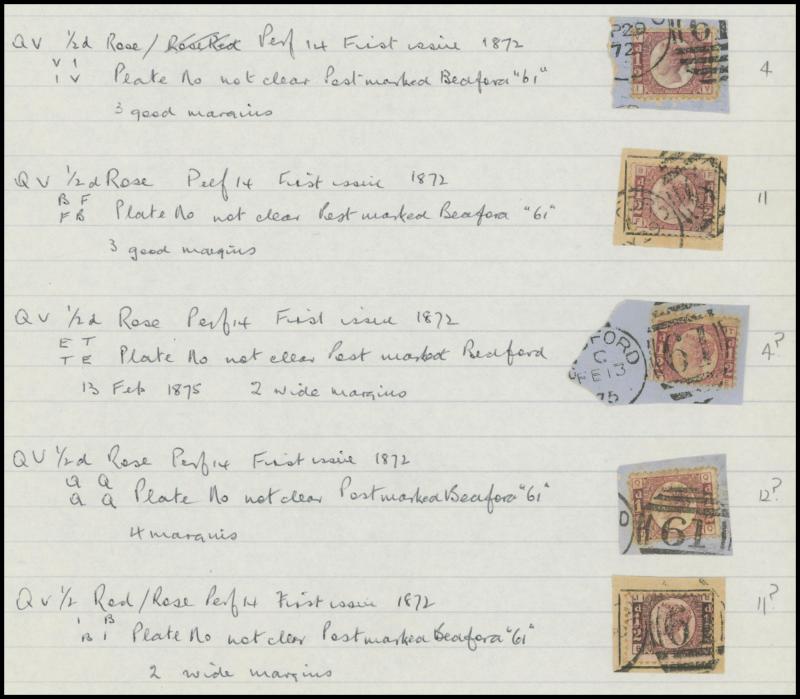 QV ½d Rose/ Rose Red Perf 14 First issue 1872
V I
I V Plate No not clear Postmarked Bedford "61"
3 good margins
4
P20
72
6
QV ½d Rose Perf 14 First issue 1872
B F
F B Plate No not clear Postmarked Bedford "61"
3 good margins
11
QV ½d Rose Perf 14 First issue 1872
E T
T E Plate No not clear Post marked Bedford
13 Feb 1875 2 wide margins
4?
DFORD
C
FE 13
75
61
QV ½d Rose Perf 14 First issue 1872
Q Q
Q Q Plate No not clear Postmarked Bedford "61"
4 margins
12?
D
61
QV ½ Red/Rose Perf 14 First issue 1872
I B
B I Plate No not clear Postmarked Bedford "61"
2 wide margins
11?